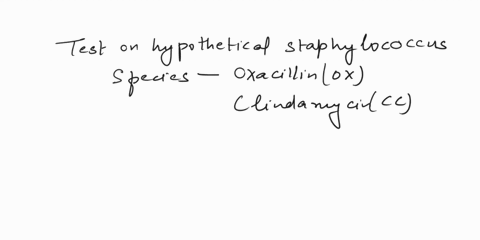 Test on hypothetical staphylococcus
Species — Oxacillin(OX)
Clindamycin(CC)